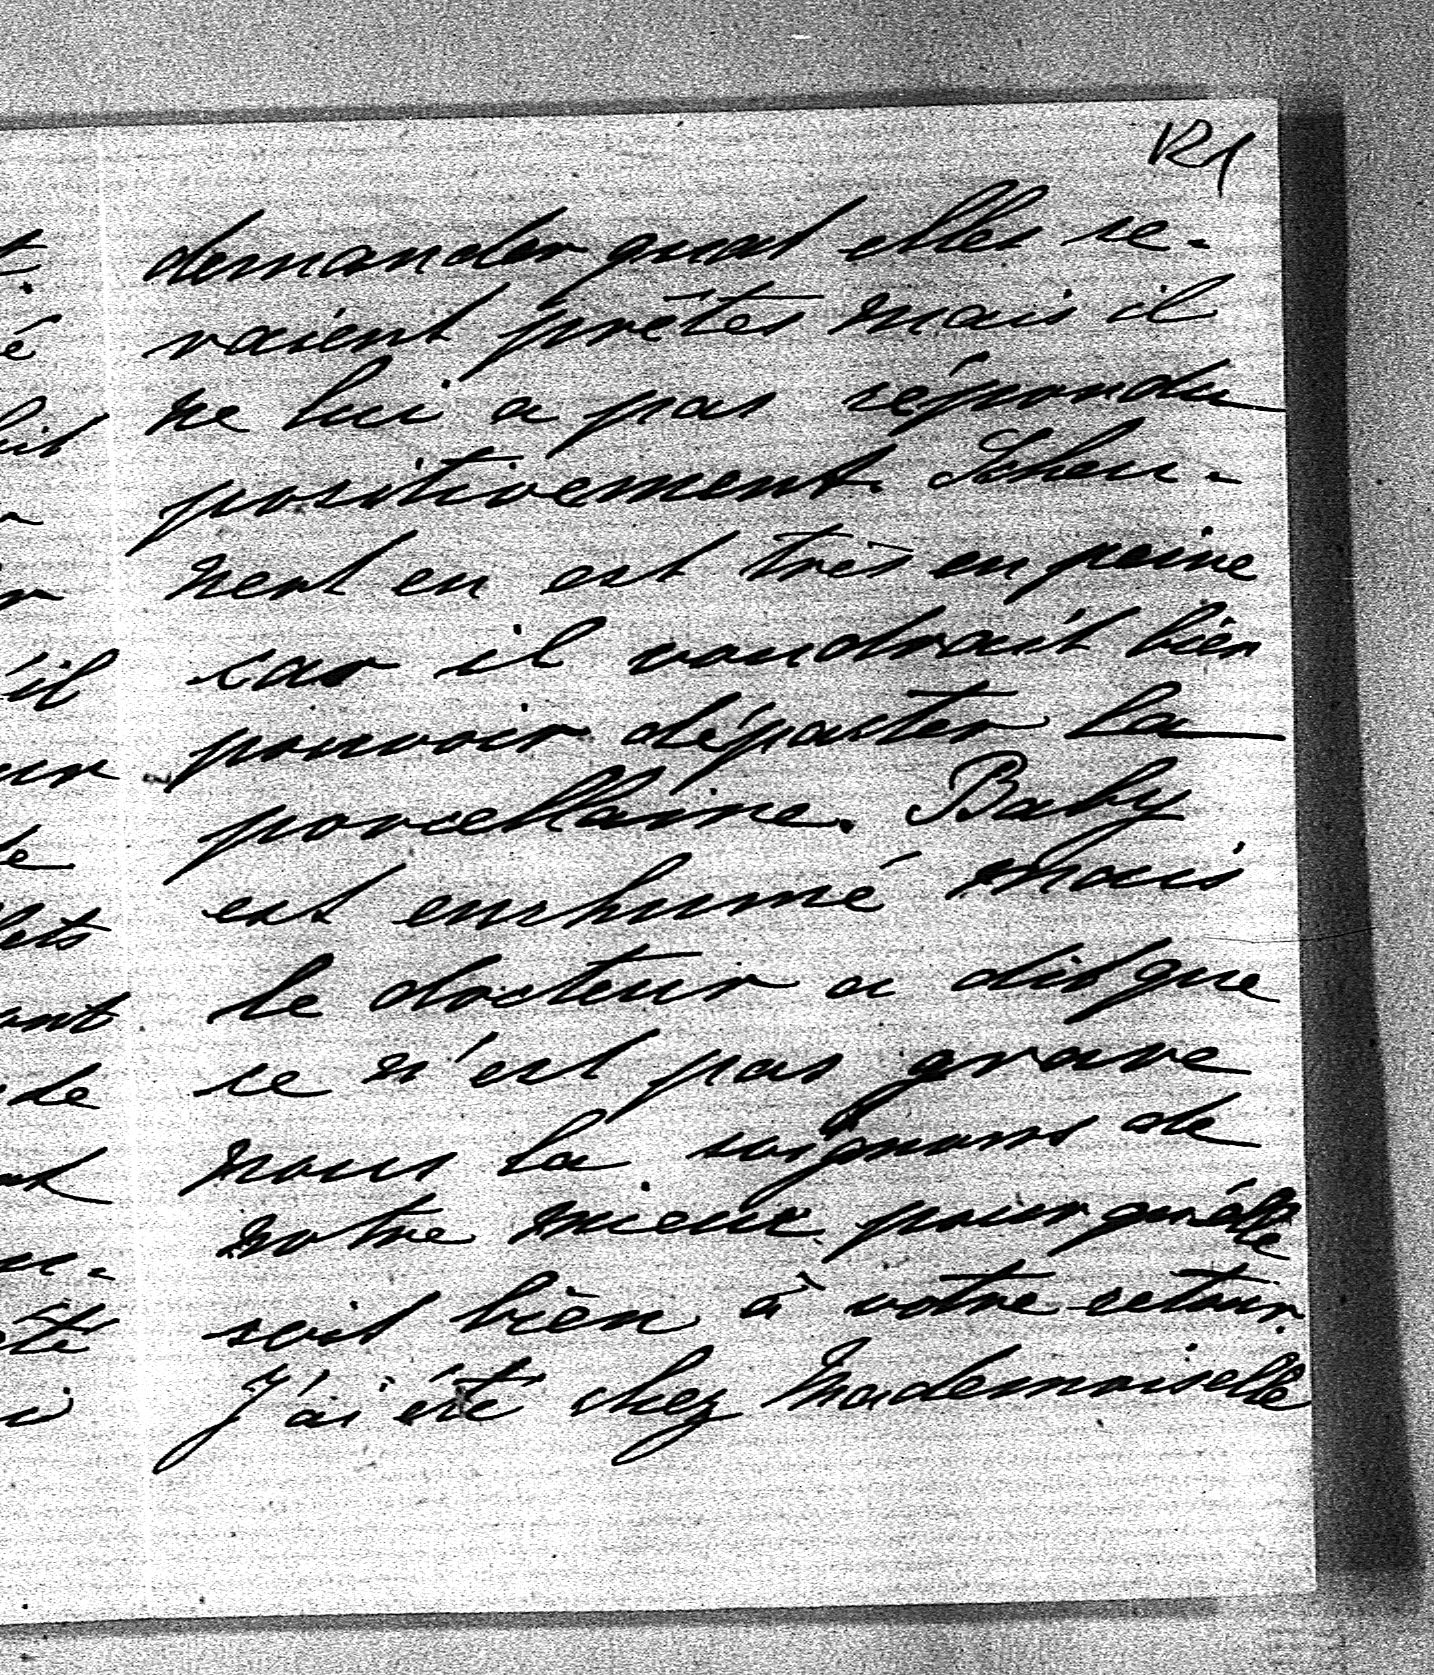 121
demander quad elles se-
raient prêtes mais il
ne lui a pas répondu
positivement. Scheu-
nert en est très en peine
car il voudrait bien
pouvoir dépaster la
porcellaine. Baby
est enrhumé mais
le docteur a dit que
ce n'est pas grave
nous la soignons de
notre mieux pour qu'elle
soit bien à votre retour.
J'ai été chez Mademoiselle